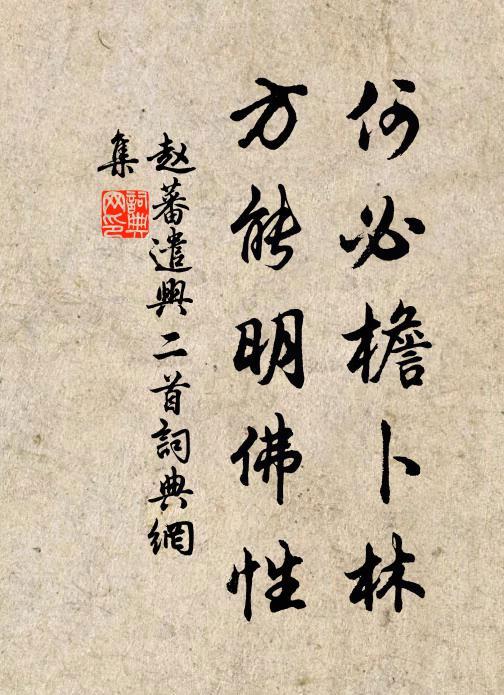 何必檐卜林
方能明佛性
赵蕃遣興二首詞典網
集
詞典
网印